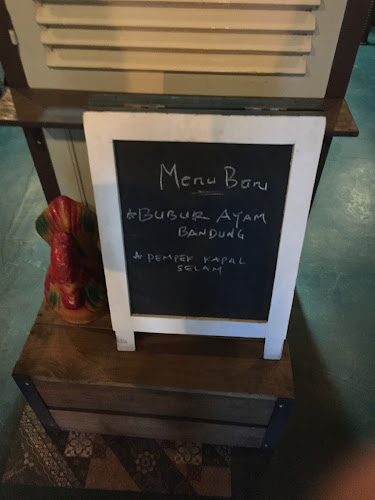 Menu Baru
* BUBUR AYAM
BANDUNG
* PEMPEK KAPAL
SELAM